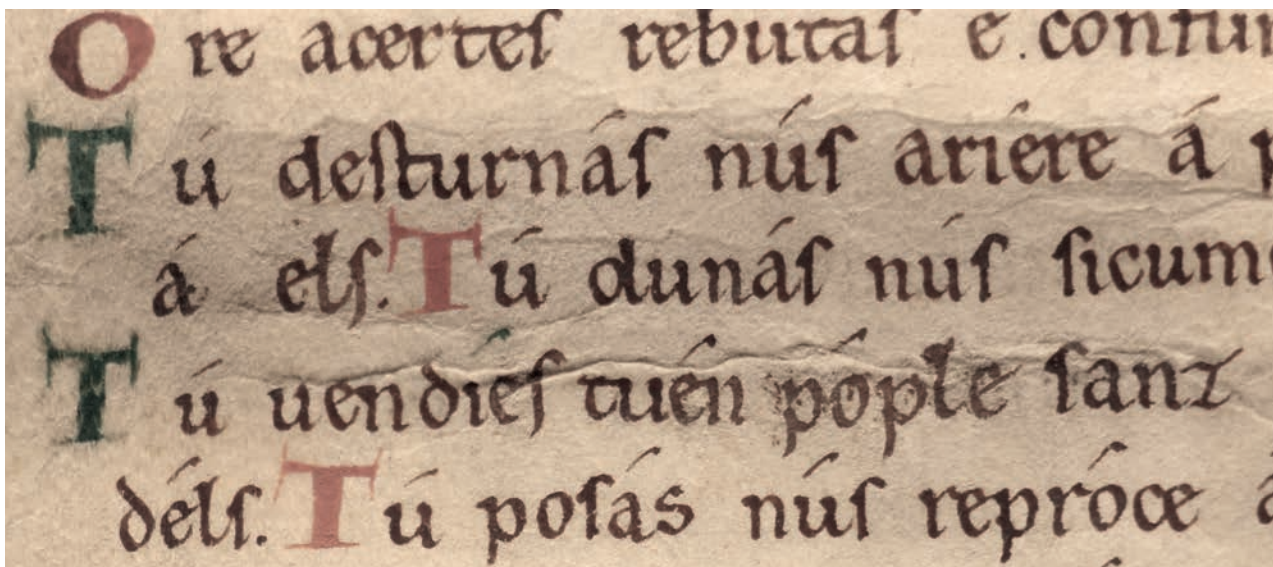 Ore acertes rebutas e. confun
Tú desturnás nús ariére á
á els. Tú dunás nús sicum
Tú uendiés tuén póple sanz
déls. Tú posás nús repróce